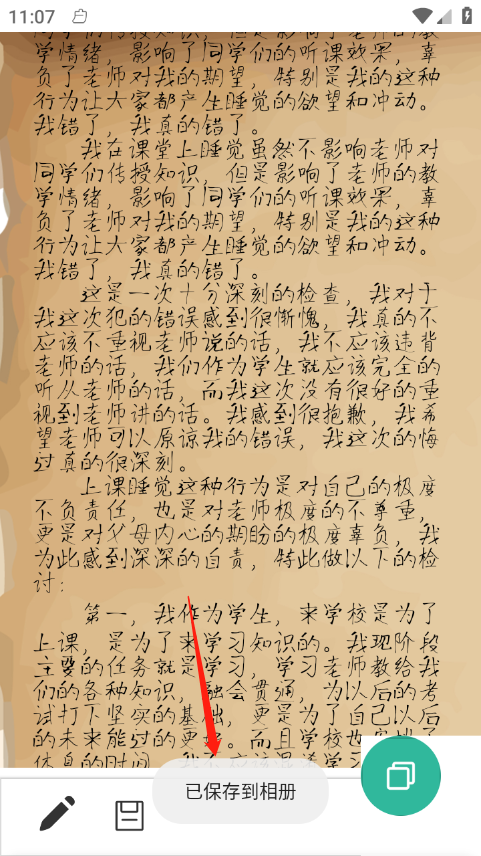 11:07
同学们传授知识，但是影响了老师的教
学情绪，影响了同学们的听课效果，辜
负了老师对我的期望，特别是我的这种
行为让大家都产生睡觉的欲望和冲动。
我错了，我真的错了。
我在课堂上睡觉虽然不影响老师对
同学们传授知识，但是影响了老师的教
学情绪，影响了同学们的听课效果，辜
负了老师对我的期望，特别是我的这种
行为让大家都产生睡觉的欲望和冲动。
我错了，我真的错了。
这是一次十分深刻的检查，我对于
我这次犯的错误感到很惭愧，我真的不
应该不重视老师说的话，我不应该违背
老师的话，我们作为学生就应该完全的
听从老师的话，而我这次没有很好的重
视到老师讲的话。我感到很抱歉，我希
望老师可以原谅我的错误，我这次的悔
过真的很深刻。
上课睡觉这种行为是对自己的极度
不负责任，也是对老师极度的不尊重，
更是对父母内心的期盼的极度辜负，我
为此感到深深的自责，特此做以下的检
讨：
第一，我作为学生，来学校是为了
上课，是为了来学习知识的。我现阶段
主要的任务就是学习，学习老师教给我
们的各种知识，融会贯通，为以后的考
试打下坚实的基础，更是为了自己以后
的未来能过的更好。而且学校也
体息的时间，我不应该混淆学习
已保存到相册